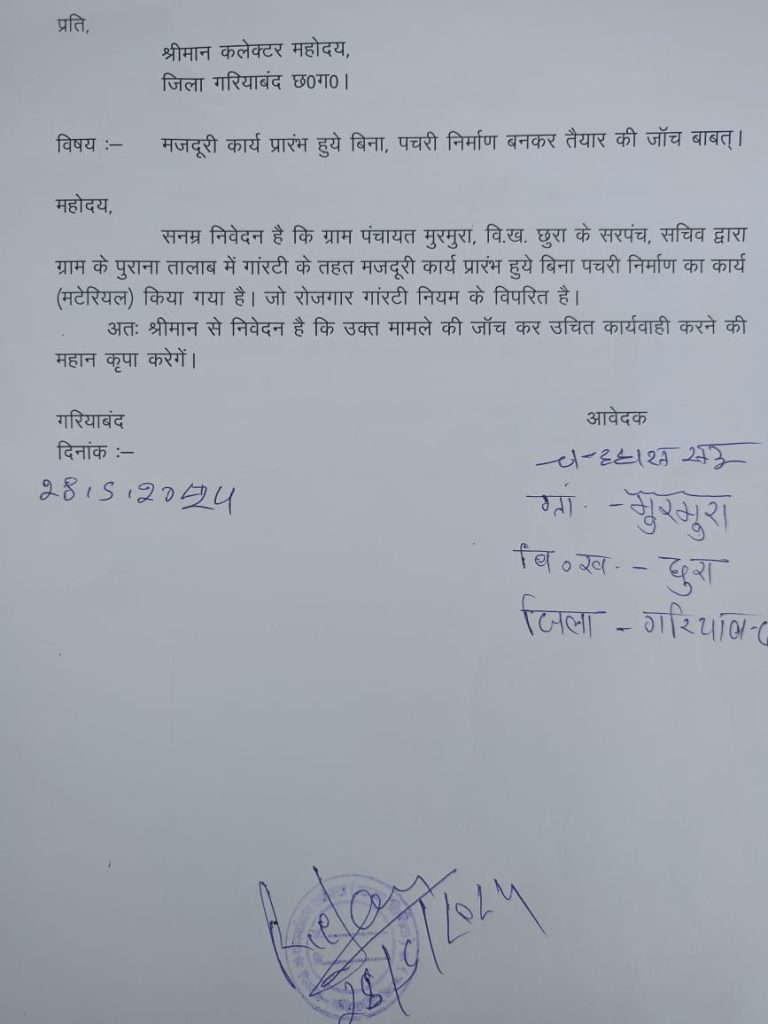 प्रति,
श्रीमान कलेक्टर महोदय,
जिला गरियाबंद छ0ग0।
विषय :– मजदूरी कार्य प्रारंभ हुये बिना, पचरी निर्माण बनकर तैयार की जॉच बाबत्।
महोदय,
सनम्र निवेदन है कि ग्राम पंचायत मुरमुरा, वि.ख. छुरा के सरपंच, सचिव द्वारा
ग्राम के पुराना तालाब में गांरटी के तहत मजदूरी कार्य प्रारंभ हुये बिना पचरी निर्माण का कार्य
(मटेरियल) किया गया है। जो रोजगार गांरटी नियम के विपरित है।
अतः श्रीमान से निवेदन है कि उक्त मामले की जॉच कर उचित कार्यवाही करने की
महान कृपा करेगें।
गरियाबंद
आवेदक
दिनांक :–
ग्रा. - मुरमुरा
वि०ख. - छुरा
जिला - गरियाब